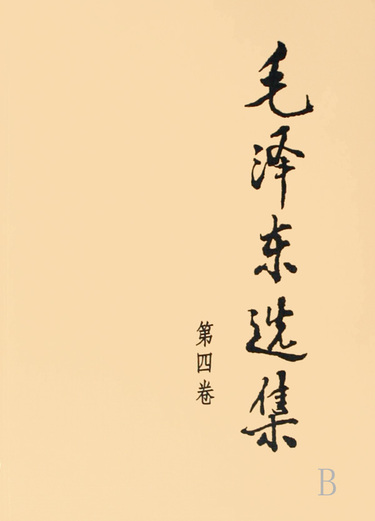 毛泽东选集
第四卷
B